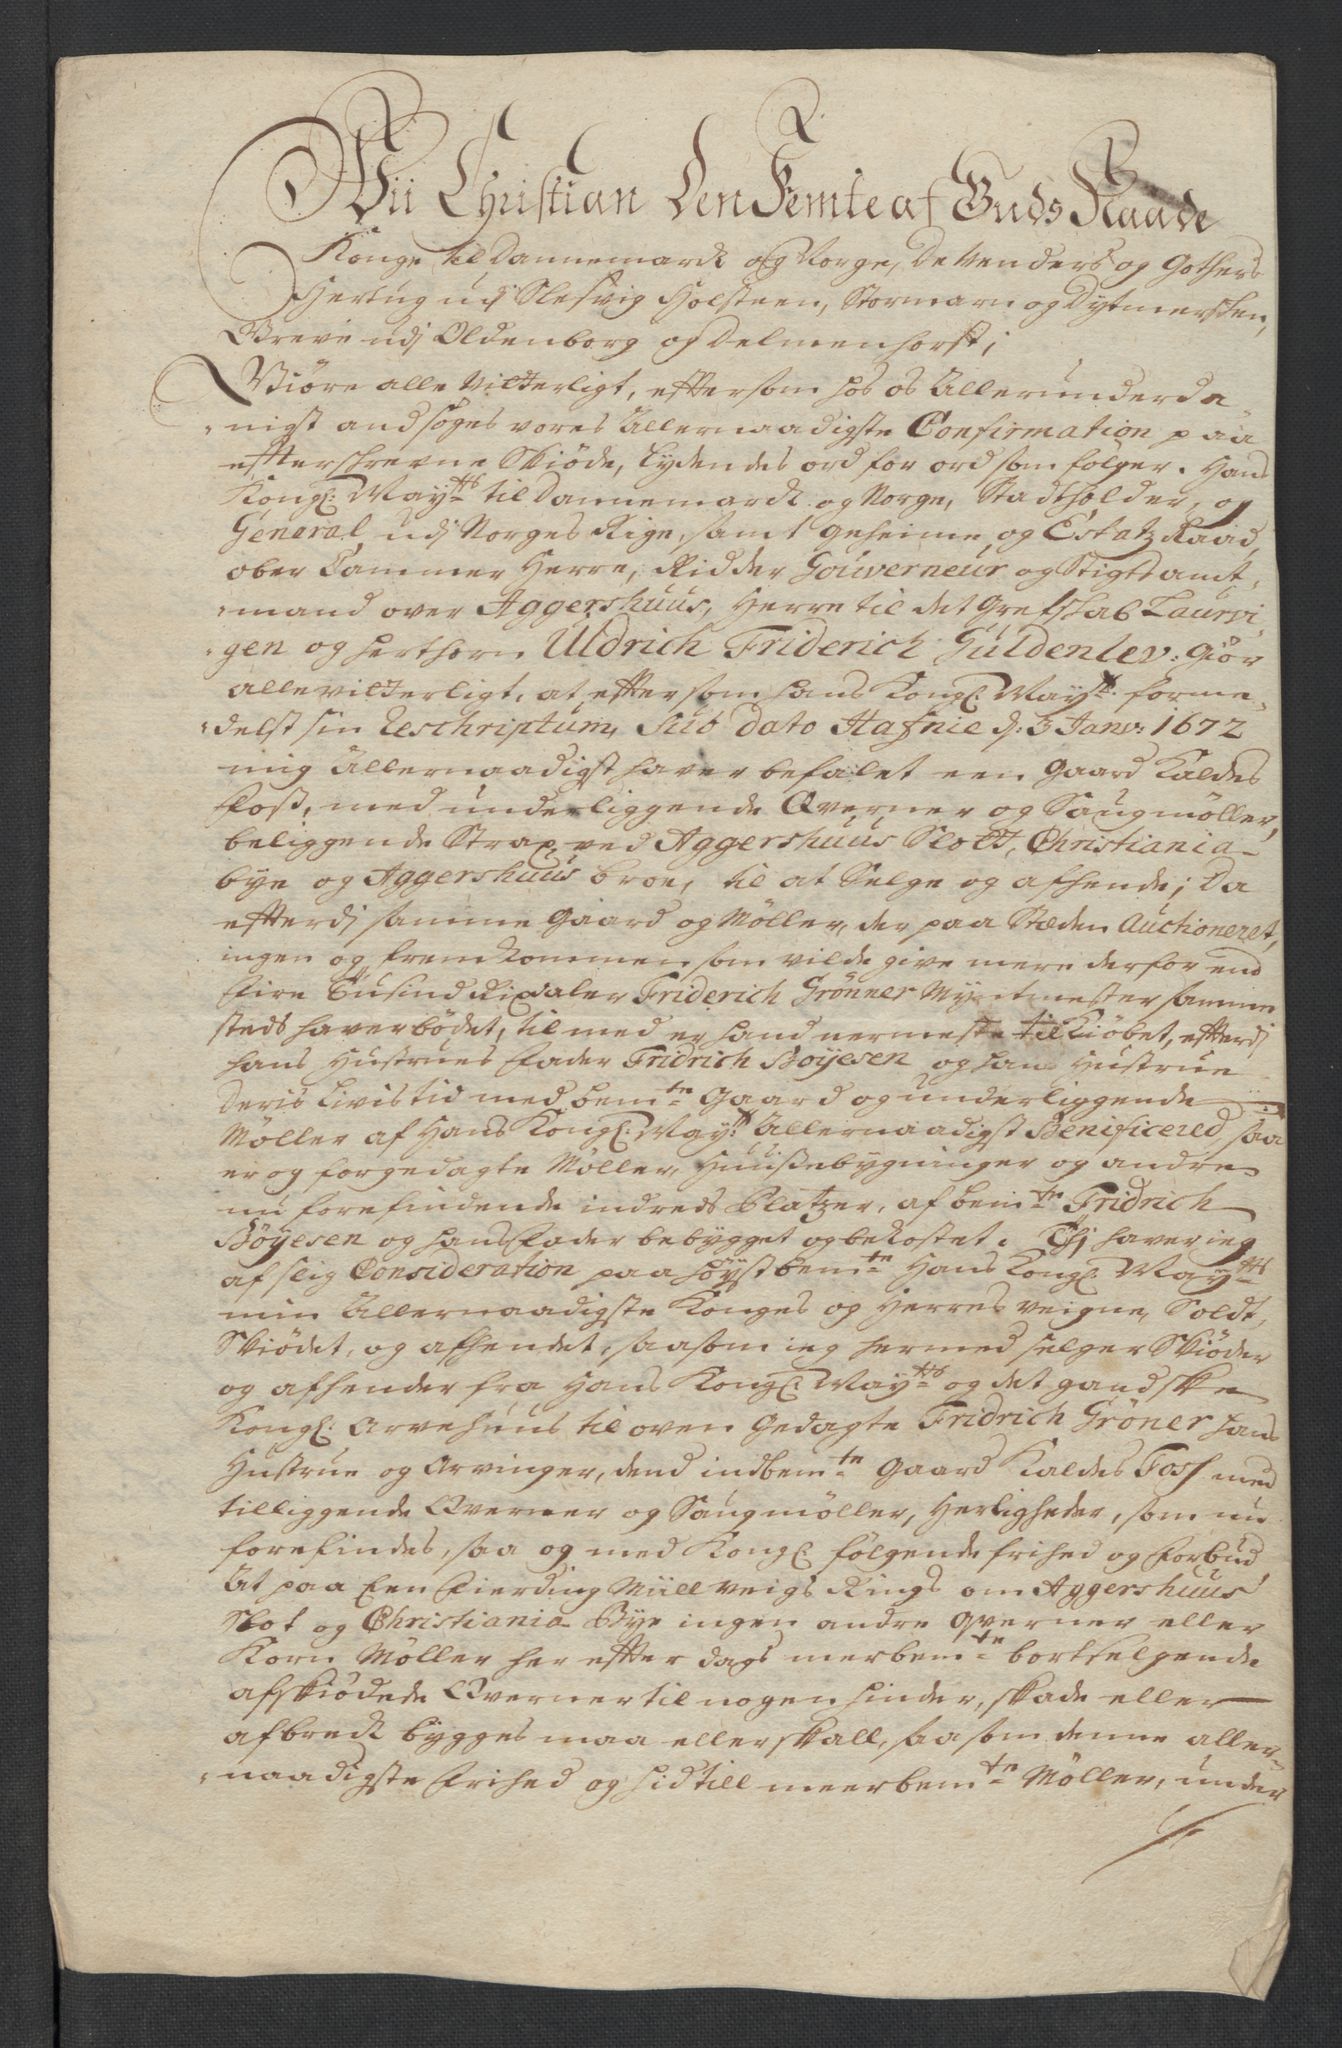 Wii Christian den Femte af Guds Naade
Konge til Dannemark og Norge, de Venders og Gothers
Hertug udj Slesvig Holsteen, Stormarn og Dytmersken,
Greve udj Oldenborg og Delmenhorst;
Giöre alle vitterligt, eftersom hos os Allerunderda
-nigst andsöges vores Allernaadigste Confirmation paa
efterschrevne Skiöde, lydendes ord for ord som folger. Hans
Kongl: Mayts til Dannemark og Norge, Stadtholder, og
General, udj Norges Rige, samt geheime, og Estatz Raad,
ober Cammer Herre, Ridder Gouverneur og Stigtsamt-
-mand over Aggershuus, Herre til det Grefskab Laurvi-
-gen og Herthorn Uldrich Friderich Guldenlev: Giör
alle vitterligt, at eftersom Hans Kongl: Mayt: forme-
-delst sin Reschriptum, Sub dato Hafnie d: 3 Janv: 1672
mig Allernaadigst haver befalet een Gaard Kaldes
Foss, med underliggende Qverner og Saugmöller,
beliggende Strax ved Aggershuus Slott, Christiania-
bye og Aggershuus broe, til at Selge og afhende; Da
efterdj samme Gaard og Möller, der paa Stæden Auctioneret,
ingen og fremkommen som vilde give mere derfor end
Fire Tusind Rixdaler Friderich Grönner Myntmester samme
steds haver bödet, til med er hand nermeste til Kiöbet, efterdj
hans Hustrues Fader Fridrich Boyesen og hans Hustrue
deris Livis tid med bemte Gaard og underliggende
Möller af Hans Kongl: Mayt: Allernaadigst Benificered, saa
er og forgedagte Möller, Huussebygninger og andre
nu forefindende indreds Platzer, af bemte Fridrich
Böyesen og hans Fader bebygget og bekostet. Thj haver ieg
af slig Consideration paa höystbemte Hans Kongl: Mayts
min Allernaadigste Konges og Herres veigne, Soldt,
Skiödet, og afhendet, saasom ieg hermed selger Skiöder
og afhender fra Hans Kongl: Mayts og det gandske
Kongl: Arvehuus til oven Gedagte Fridrich Gröner hans
Hustrue og Arvinger, dend indbemte Gaard Kaldes Foss med
tilliggende Qverner og Saugmöller, Herligheder, som nu
forefindes, saa og med Kongl: fölgende frihed og Forbud
At paa Een Fierding Miill veigs Rings om Aggershuus
Slot og Christiania Bye ingen andre Qverner eller
Korn Möller her efter dags merbemte bortselgende
afskiödede Qverner til nogen hinder, skade eller
afbrek bygges maa eller skall, saasom denne aller-
-naadigste Frihed og hidtill meerbemte Möller, under